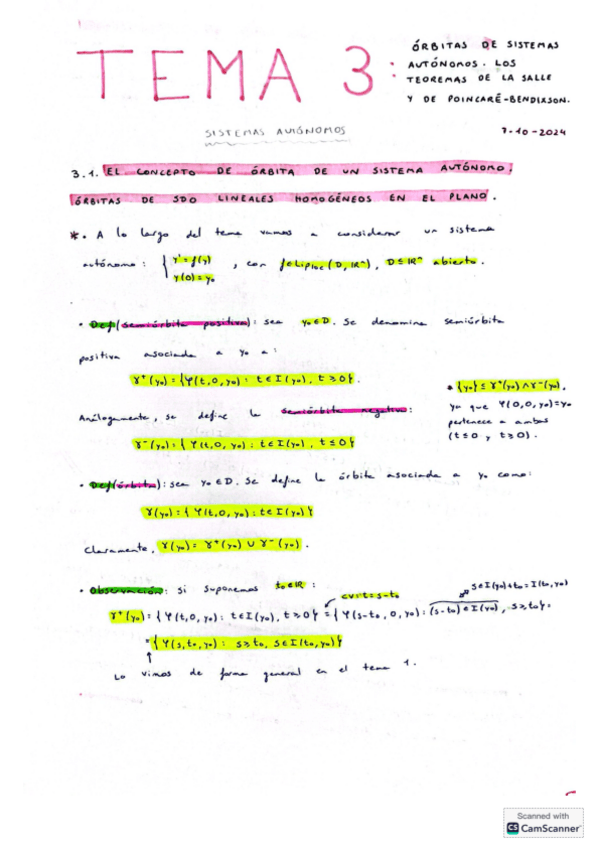 TEMA 3:
ÓRBITAS DE SISTEMAS
AUTÓNOMOS. LOS
TEOREMAS DE LA SALLE
Y DE POINCARÉ-BENDIXSON.
SISTEMAS AUTÓNOMOS
7-10-2024
3.1. EL CONCEPTO DE ÓRBITA DE UN SISTEMA AUTÓNOMO.
ÓRBITAS DE SDO LINEALES HOMOGÉNEOS EN EL PLANO.
*. A lo largo del tema vamos a considerar un sistema
autónomo: { y' = f(y)
y(0) = y₀ , con f∈Liploc(D, ℝⁿ), D⊆ℝⁿ abierto.
• Def (semiórbita positiva): sea y₀∈D. Se denomina semiórbita
positiva asociada a y₀ a:
γ⁺(y₀) = {φ(t,0,y₀) : t∈I(y₀), t≥0}.
Análogamente, se define la semiórbita negativa:
γ⁻(y₀) = {φ(t,0,y₀) : t∈I(y₀), t≤0}
* {y₀} ⊆ γ⁺(y₀) ∧ γ⁻(y₀),
ya que φ(0,0,y₀)=y₀
pertenece a ambas
(t≤0 y t≥0).
• Def (órbita): sea y₀∈D. Se define la órbita asociada a y₀ como:
γ(y₀) = {φ(t,0,y₀) : t∈I(y₀)}
Claramente, γ(y₀) = γ⁺(y₀) ∪ γ⁻(y₀).
• Observación: si suponemos t₀∈ℝ:
cv: t=s-t₀
s∈I(y₀)+t₀=I(t₀,y₀)
γ⁺(y₀) = {φ(t,0,y₀) : t∈I(y₀), t≥0} = {φ(s-t₀,0,y₀) : (s-t₀)∈I(y₀), s≥t₀} =
= {φ(s,t₀,y₀) : s≥t₀, s∈I(t₀,y₀)}
Lo vimos de forma general en el tema 1.
Scanned with
CS CamScanner